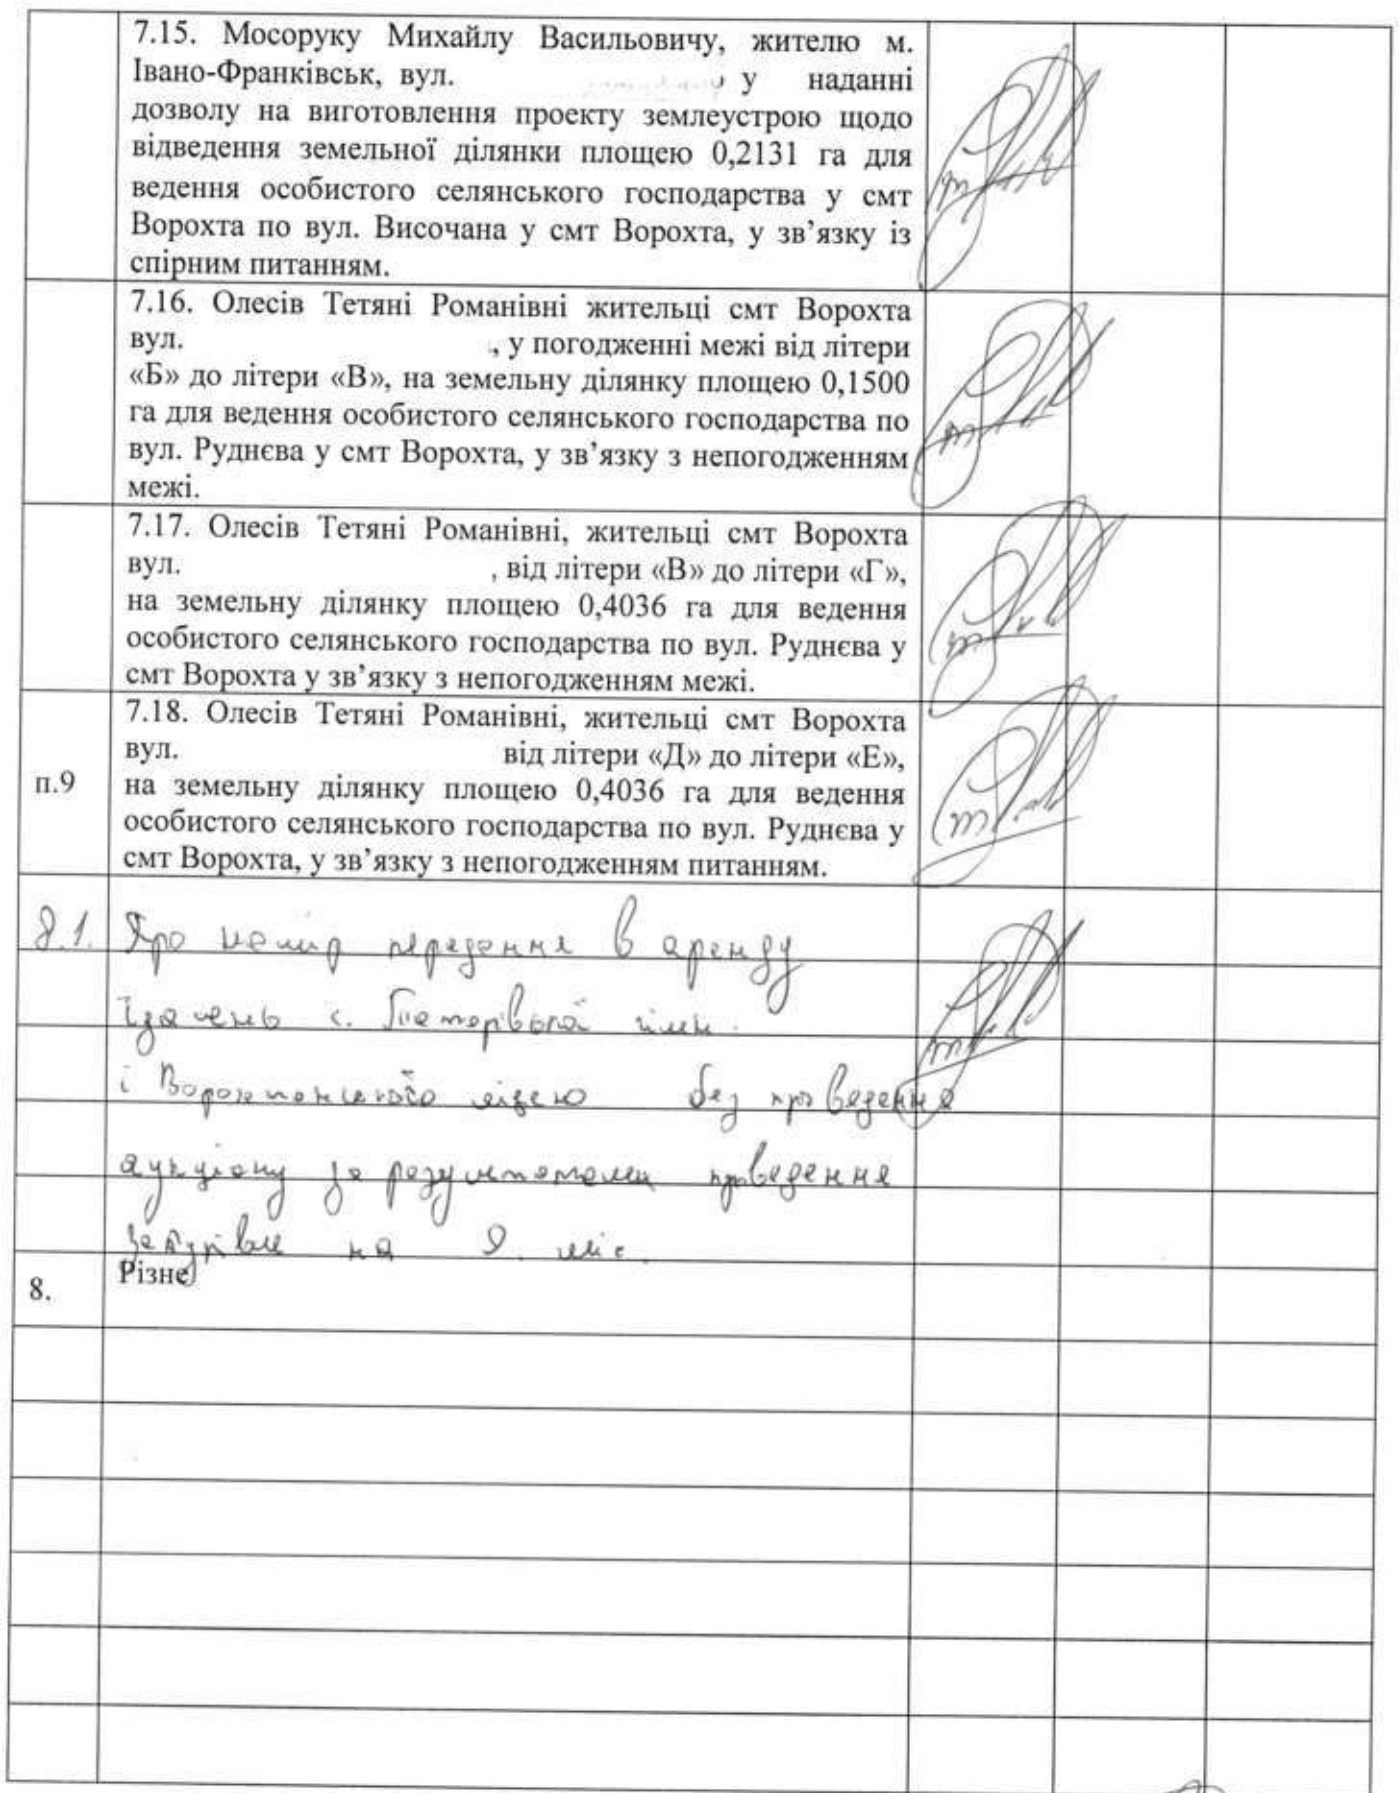 7.15. Мосоруку Михайлу Васильовичу, жителю м.
Івано-Франківськ, вул. у наданні
дозволу на виготовлення проекту землеустрою щодо
відведення земельної ділянки площею 0,2131 га для
ведення особистого селянського господарства у смт
Ворохта по вул. Височана у смт Ворохта, у зв’язку із
спірним питанням.
7.16. Олесів Тетяні Романівні жительці смт Ворохта
вул. , у погодженні межі від літери
«Б» до літери «В», на земельну ділянку площею 0,1500
га для ведення особистого селянського господарства по
вул. Руднєва у смт Ворохта, у зв’язку з непогодженням
межі.
7.17. Олесів Тетяні Романівні, жительці смт Ворохта
вул. , від літери «В» до літери «Г»,
на земельну ділянку площею 0,4036 га для ведення
особистого селянського господарства по вул. Руднєва у
смт Ворохта у зв’язку з непогодженням межі.
7.18. Олесів Тетяні Романівні, жительці смт Ворохта
вул. від літери «Д» до літери «Е»,
п.9 на земельну ділянку площею 0,4036 га для ведення
особистого селянського господарства по вул. Руднєва у
смт Ворохта, у зв’язку з непогодженням питанням.
8.1. Про намір передення в аренду
їдалень с.
і Ворохтянського ліцею без проведення
аукціону за результатами проведення
на 9. міс.
Різне
8.